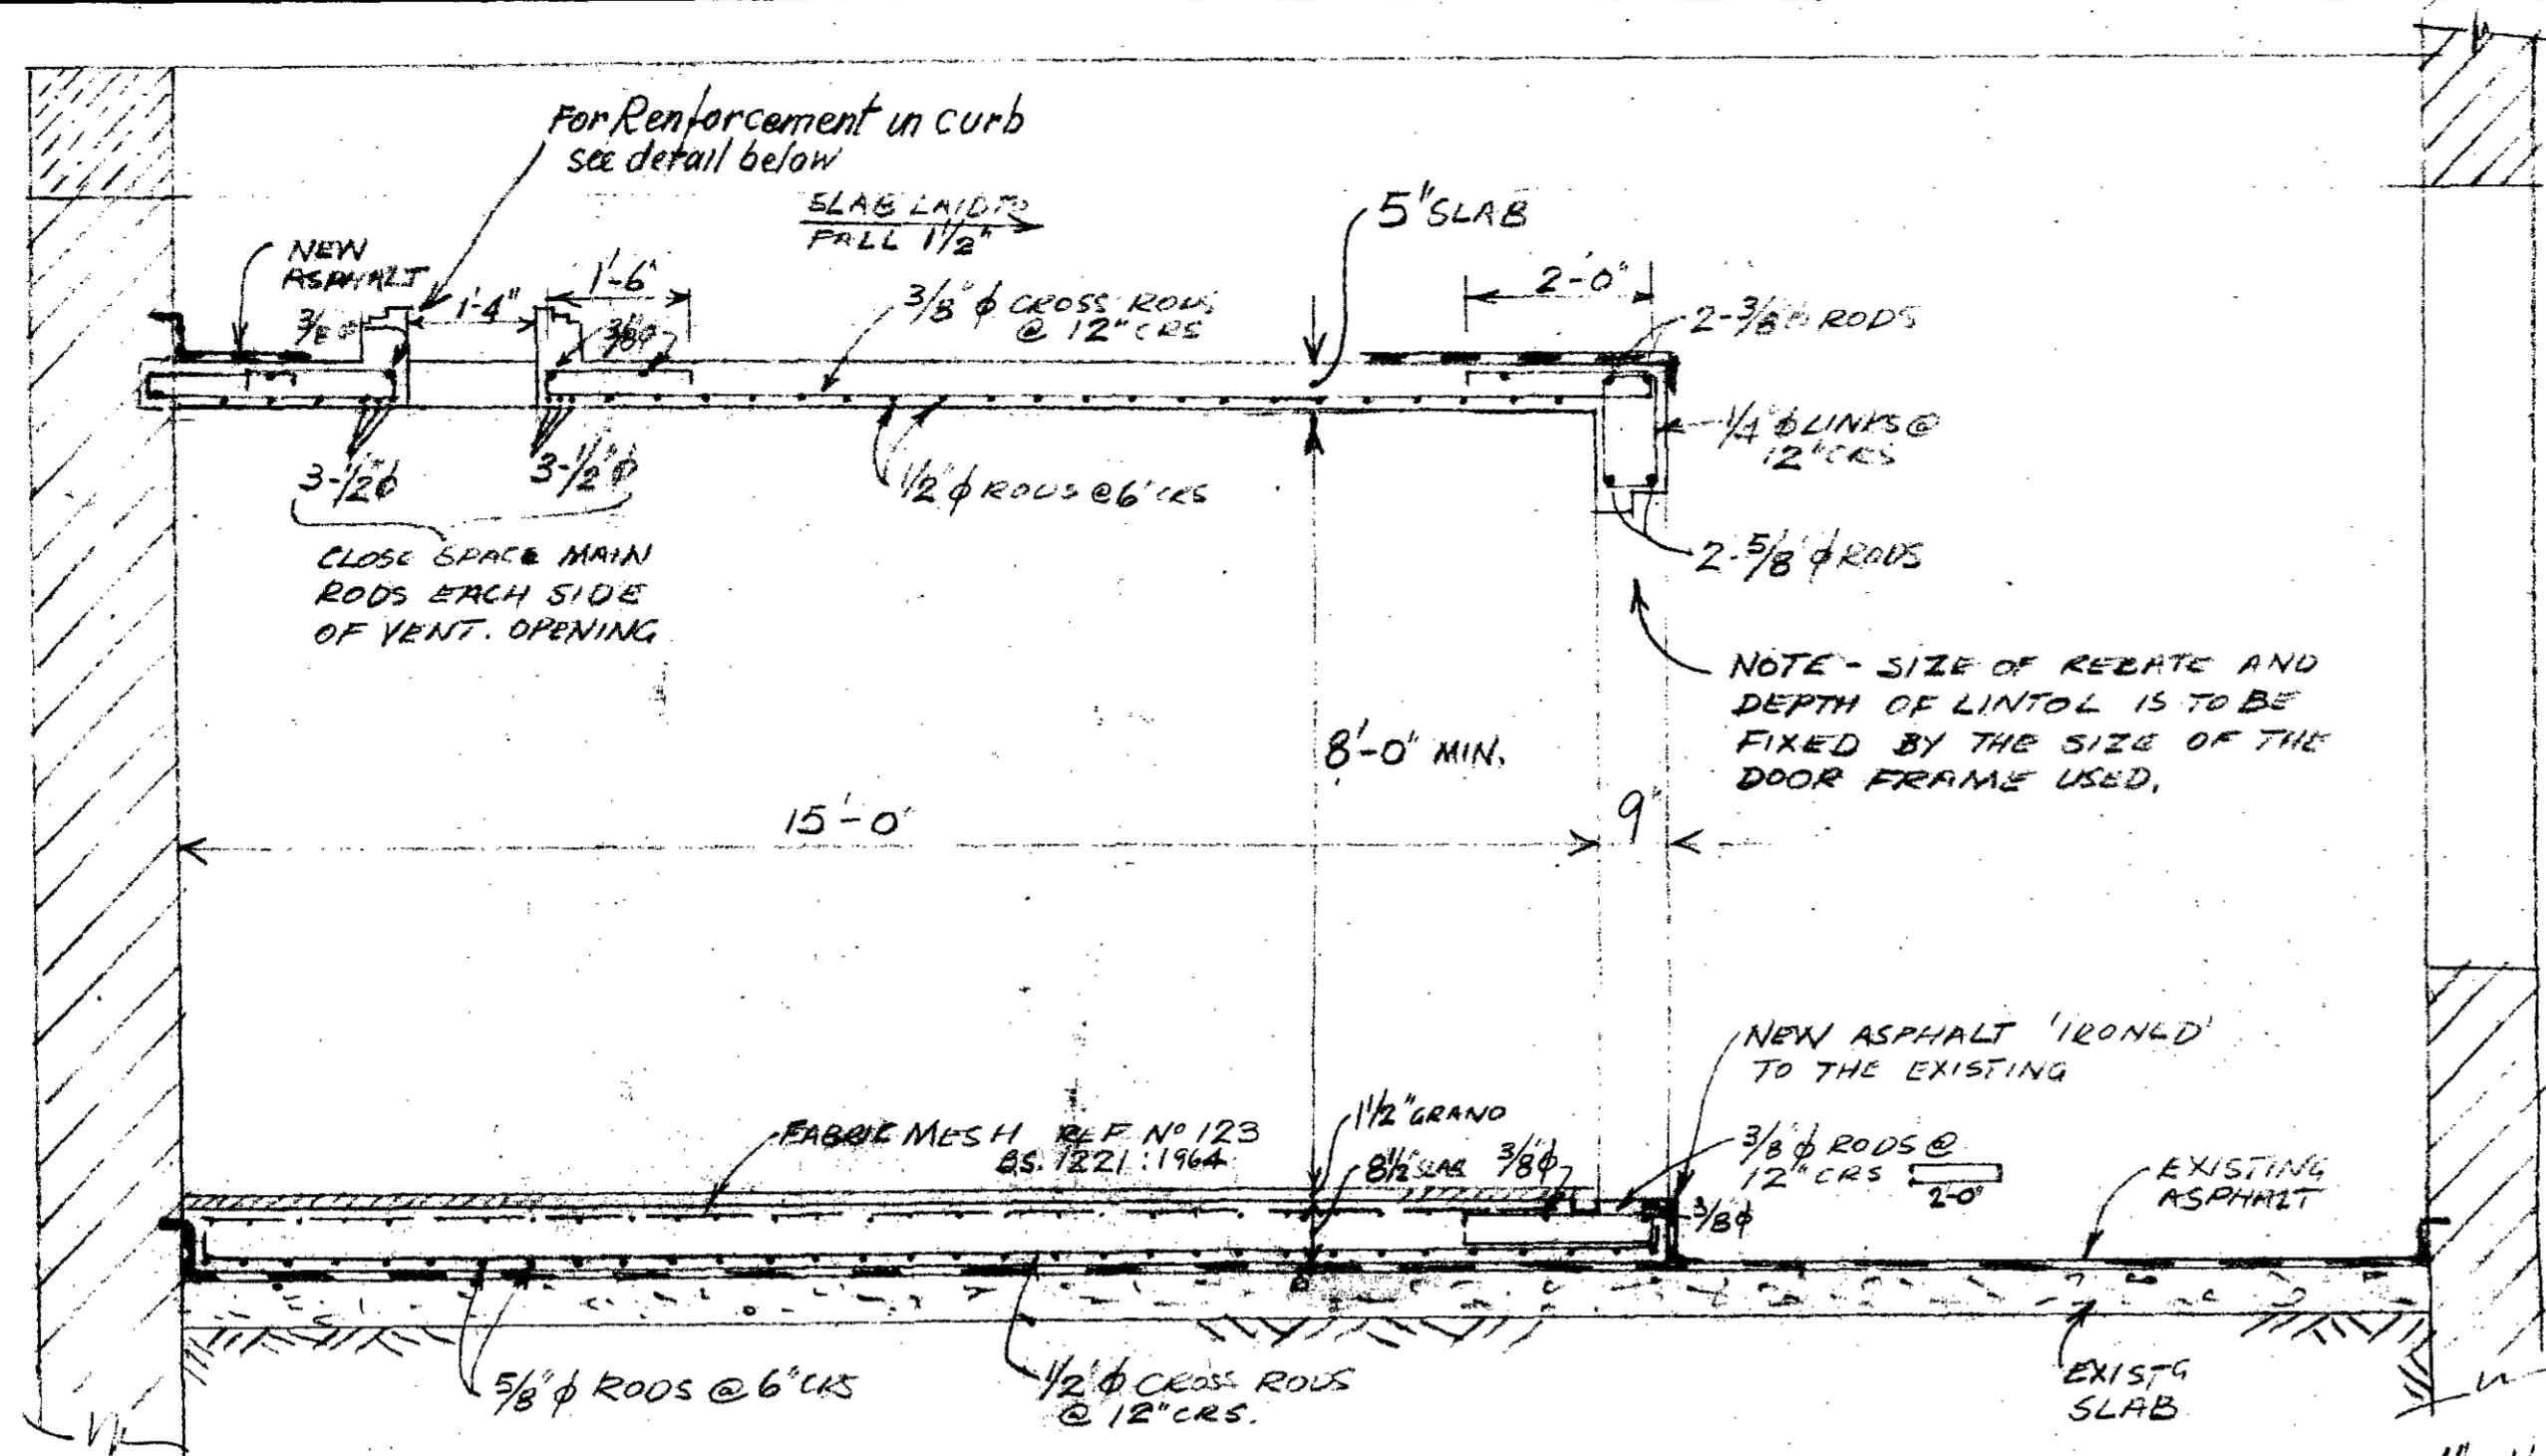 For Renforcement in curb
see detail below
SLAB LAID TO
FALL 1 1/2"
5" SLAB
NEW
ASPHALT
1'-6"
2'-0"
1'-4"
3/8"ϕ CROSS RODS
@ 12" CRS
2-3/8"ϕ RODS
3/8ϕ
3/8ϕ
1/4"ϕ LINKS @
12" CRS
3-1/2"ϕ
3-1/2"ϕ
1/2"ϕ RODS @ 6" CRS
CLOSE SPACE MAIN
RODS EACH SIDE
OF VENT. OPENING
2-5/8"ϕ RODS
NOTE - SIZE OF REBATE AND
DEPTH OF LINTOL IS TO BE
FIXED BY THE SIZE OF THE
DOOR FRAME USED.
8'-0" MIN.
15'-0"
9"
NEW ASPHALT 'IRONED'
TO THE EXISTING
FABRIC MESH REF Nº 123
BS. 1221 : 1964
1 1/2" GRANO
8 1/2" SLAB
3/8"ϕ
3/8"ϕ RODS @
12" CRS
2'-0"
3/8ϕ
EXISTING
ASPHALT
5/8"ϕ RODS @ 6" CRS
1/2"ϕ CROSS RODS
@ 12" CRS.
EXISTG
SLAB